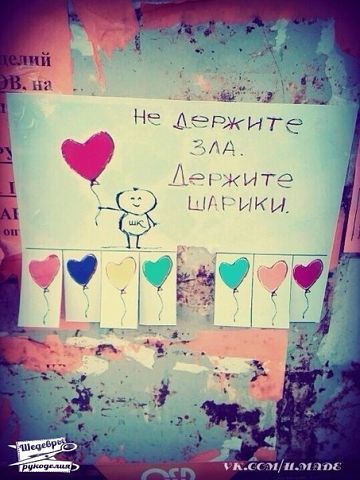 Не держите
зла.
Держите
шарики.
ШК
Шедевры
рукоделия
VK.COM/H.MADE